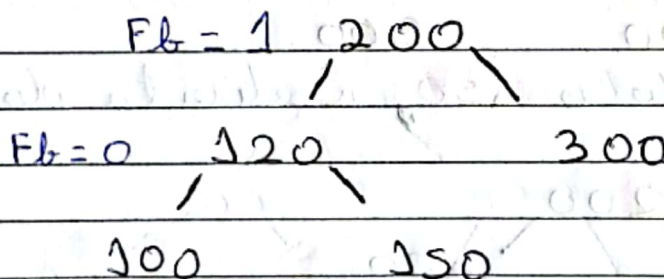 Fb = 1 200
Fb = 0 120 300
100 150